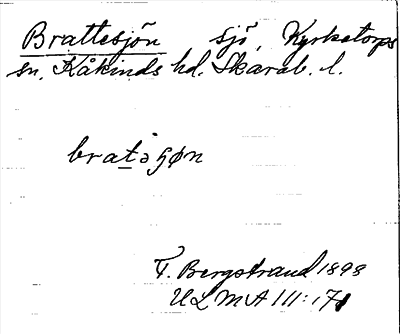 Brattesjön sjö, Kyrketorps
sn, Kåkinds hd. Skarab. l.
bratəʃøn
F. Bergstrand 1898
ULMA 111:171